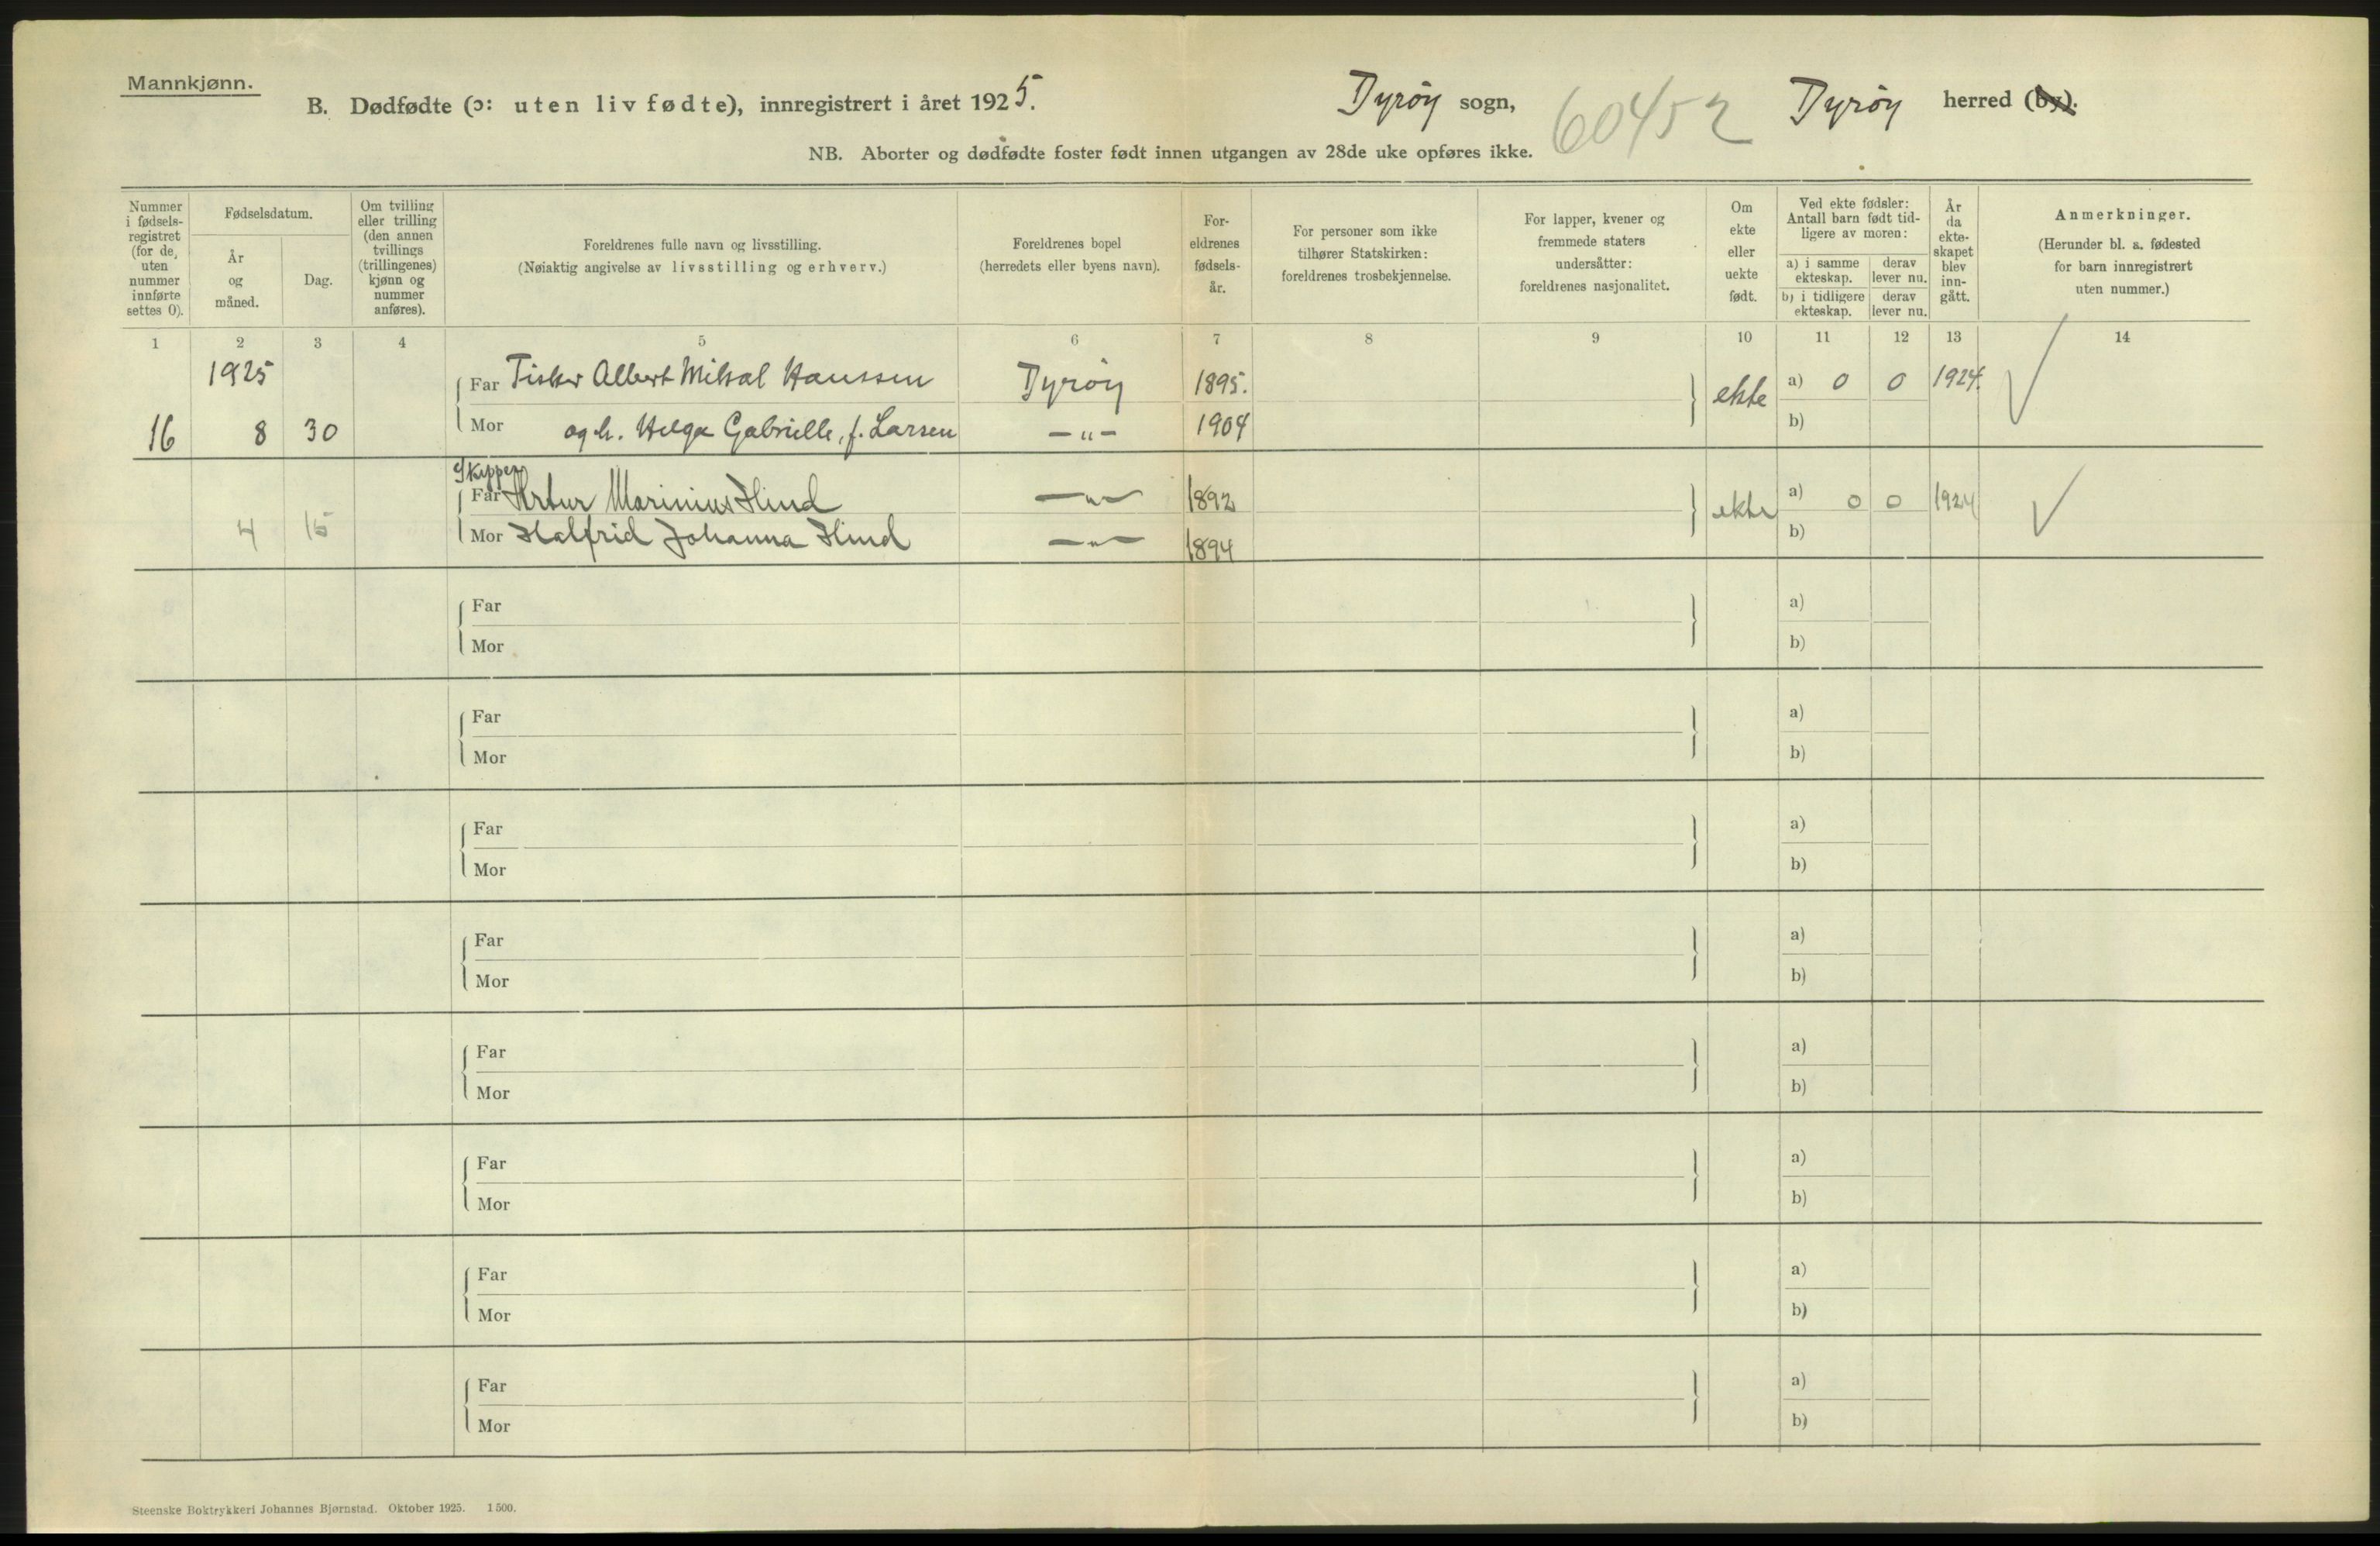 Mannkjønn.
B. Dødfødte (ɔ: uten liv fødte), innregistrert i året 1925. Dyrøy sogn, 60452 Dyrøy herred (by).
NB. Aborter og dødfødte foster født innen utgangen av 28de uke opføres ikke.
Nummer i fødsels-registret (for de uten nummer innførte settes 0).
Fødselsdatum.
År og måned.
Dag.
Om tvilling eller trilling (den annen tvillings (trillingenes) kjønn og nummer anføres).
Foreldrenes fulle navn og livsstilling.
(Nøiaktig angivelse av livsstilling og erhverv.)
Foreldrenes bopel
(herredets eller byens navn).
For-eldrenes fødsels-år.
For personer som ikke tilhører Statskirken: foreldrenes trosbekjennelse.
For lapper, kvener og fremmede staters undersåtter: foreldrenes nasjonalitet.
Om ekte eller uekte født.
Ved ekte fødsler: Antall barn født tid-ligere av moren:
a) i samme ekteskap. derav lever nu.
b) i tidligere ekteskap. derav lever nu.
År da ekte-skapet blev inn-gått.
Anmerkninger.
(Herunder bl. a. fødested for barn innregistrert uten nummer.)
1 2 3 4 5 6 7 8 9 10 11 12 13 14
1925 Far Fisker Albert Mikal Hanssen Dyrøy 1895. ekte a) 0 0 1924.
16 8 30 Mor og h. Helga Gabrielle, f. Larsen —"— 1904 b)
Skipper
Far Artur Marinius Hind —"— 1892 ekte a) 0 0 1924
4 15 Mor Halfrid Johanna Hind —"— 1894 b)
Far a)
Mor b)
Far a)
Mor b)
Far a)
Mor b)
Far a)
Mor b)
Far a)
Mor b)
Far a)
Mor b)
Far a)
Mor b)
Far a)
Mor b)
Steenske Boktrykkeri Johannes Bjørnstad. Oktober 1925. 1500.